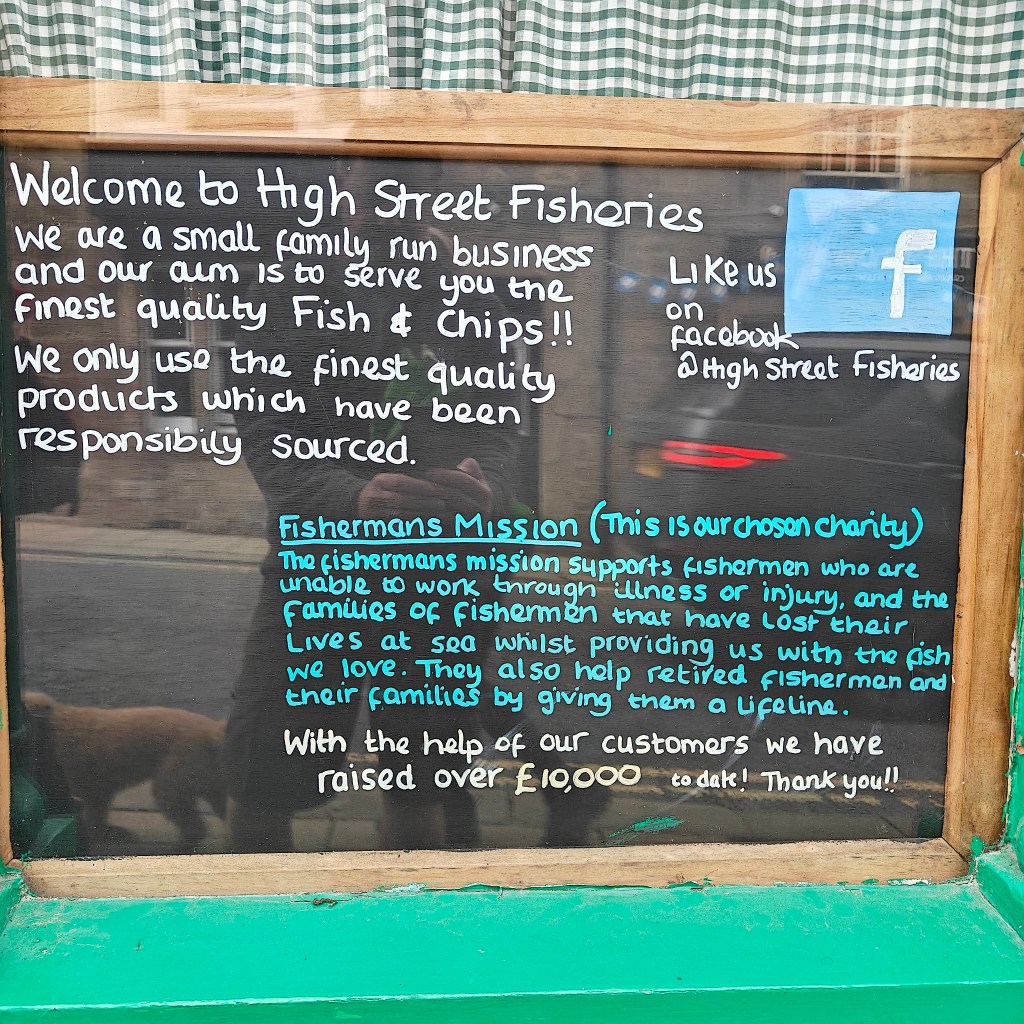 Welcome to High Street Fisheries
We are a small family run business
and our aim is to serve you the
finest quality Fish & Chips!!
We only use the finest quality
products which have been
responsibily sourced.
f
Like us
on
facebook
@High Street Fisheries
Fishermans Mission (This is our chosen charity)
The fishermans mission supports fishermen who are
unable to work through illness or injury, and the
families of fishermen that have lost their
lives at sea whilst providing us with the fish
we love. They also help retired fishermen and
their families by giving them a lifeline.
With the help of our customers we have
raised over £10,000 to date! Thank you!!